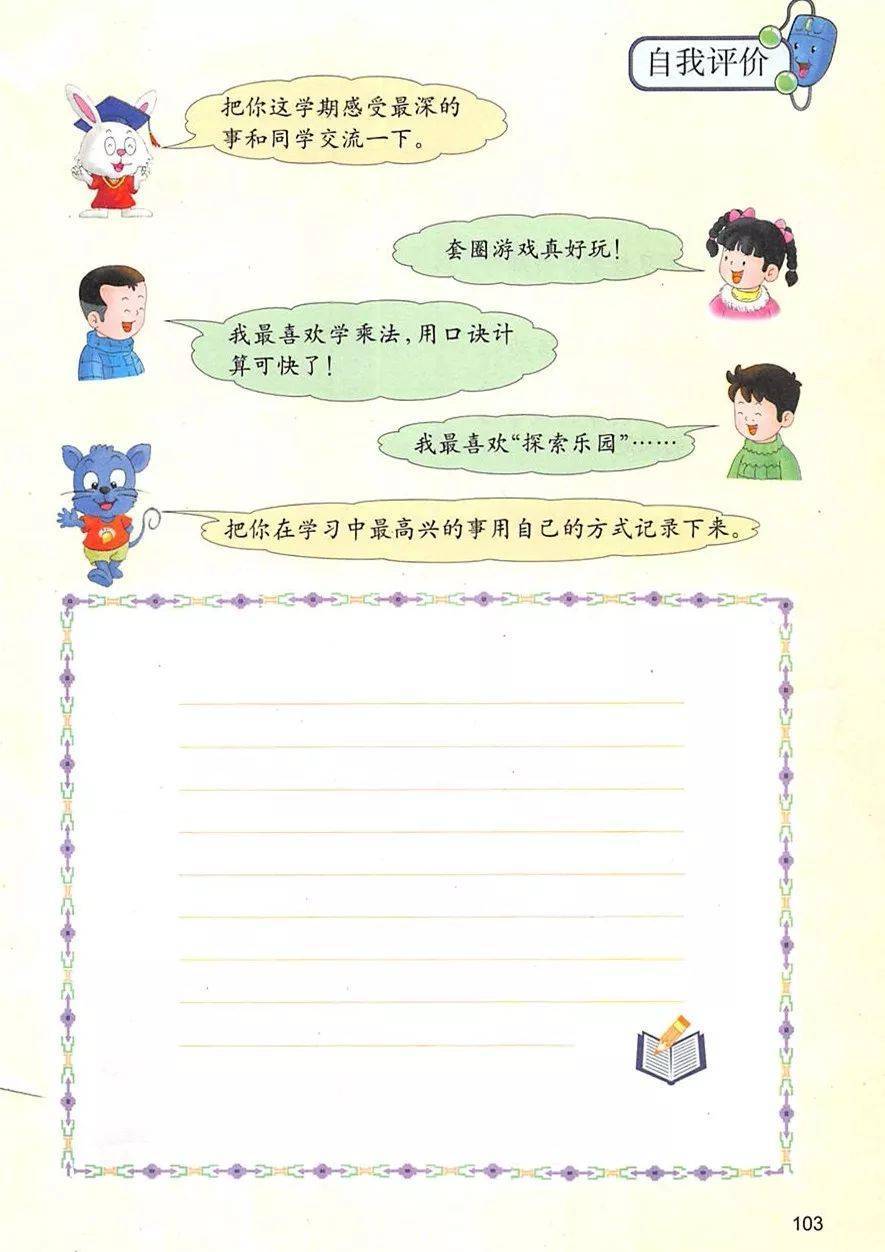 自我评价
把你这学期感受最深的
事和同学交流一下。
套圈游戏真好玩！
我最喜欢学乘法，用口诀计
算可快了！
我最喜欢“探索乐园”……
把你在学习中最高兴的事用自己的方式记录下来。
103